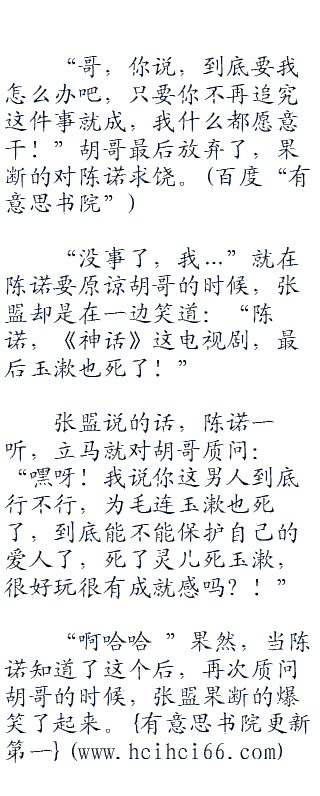 “哥，你说，到底要我
怎么办吧，只要你不再追究
这件事就成，我什么都愿意
干！”胡哥最后放弃了，果
断的对陈诺求饶。(百度“有
意思书院”)
“没事了，我…”就在
陈诺要原谅胡哥的时候，张
盟却是在一边笑道：“陈
诺，《神话》这电视剧，最
后玉漱也死了！”
张盟说的话，陈诺一
听，立马就对胡哥质问：
“嘿呀！我说你这男人到底
行不行，为毛连玉漱也死
了，到底能不能保护自己的
爱人了，死了灵儿死玉漱，
很好玩很有成就感吗？！”
“啊哈哈 ”果然，当陈
诺知道了这个后，再次质问
胡哥的时候，张盟果断的爆
笑了起来。{有意思书院更新
第一}(www.hcihci66.com)